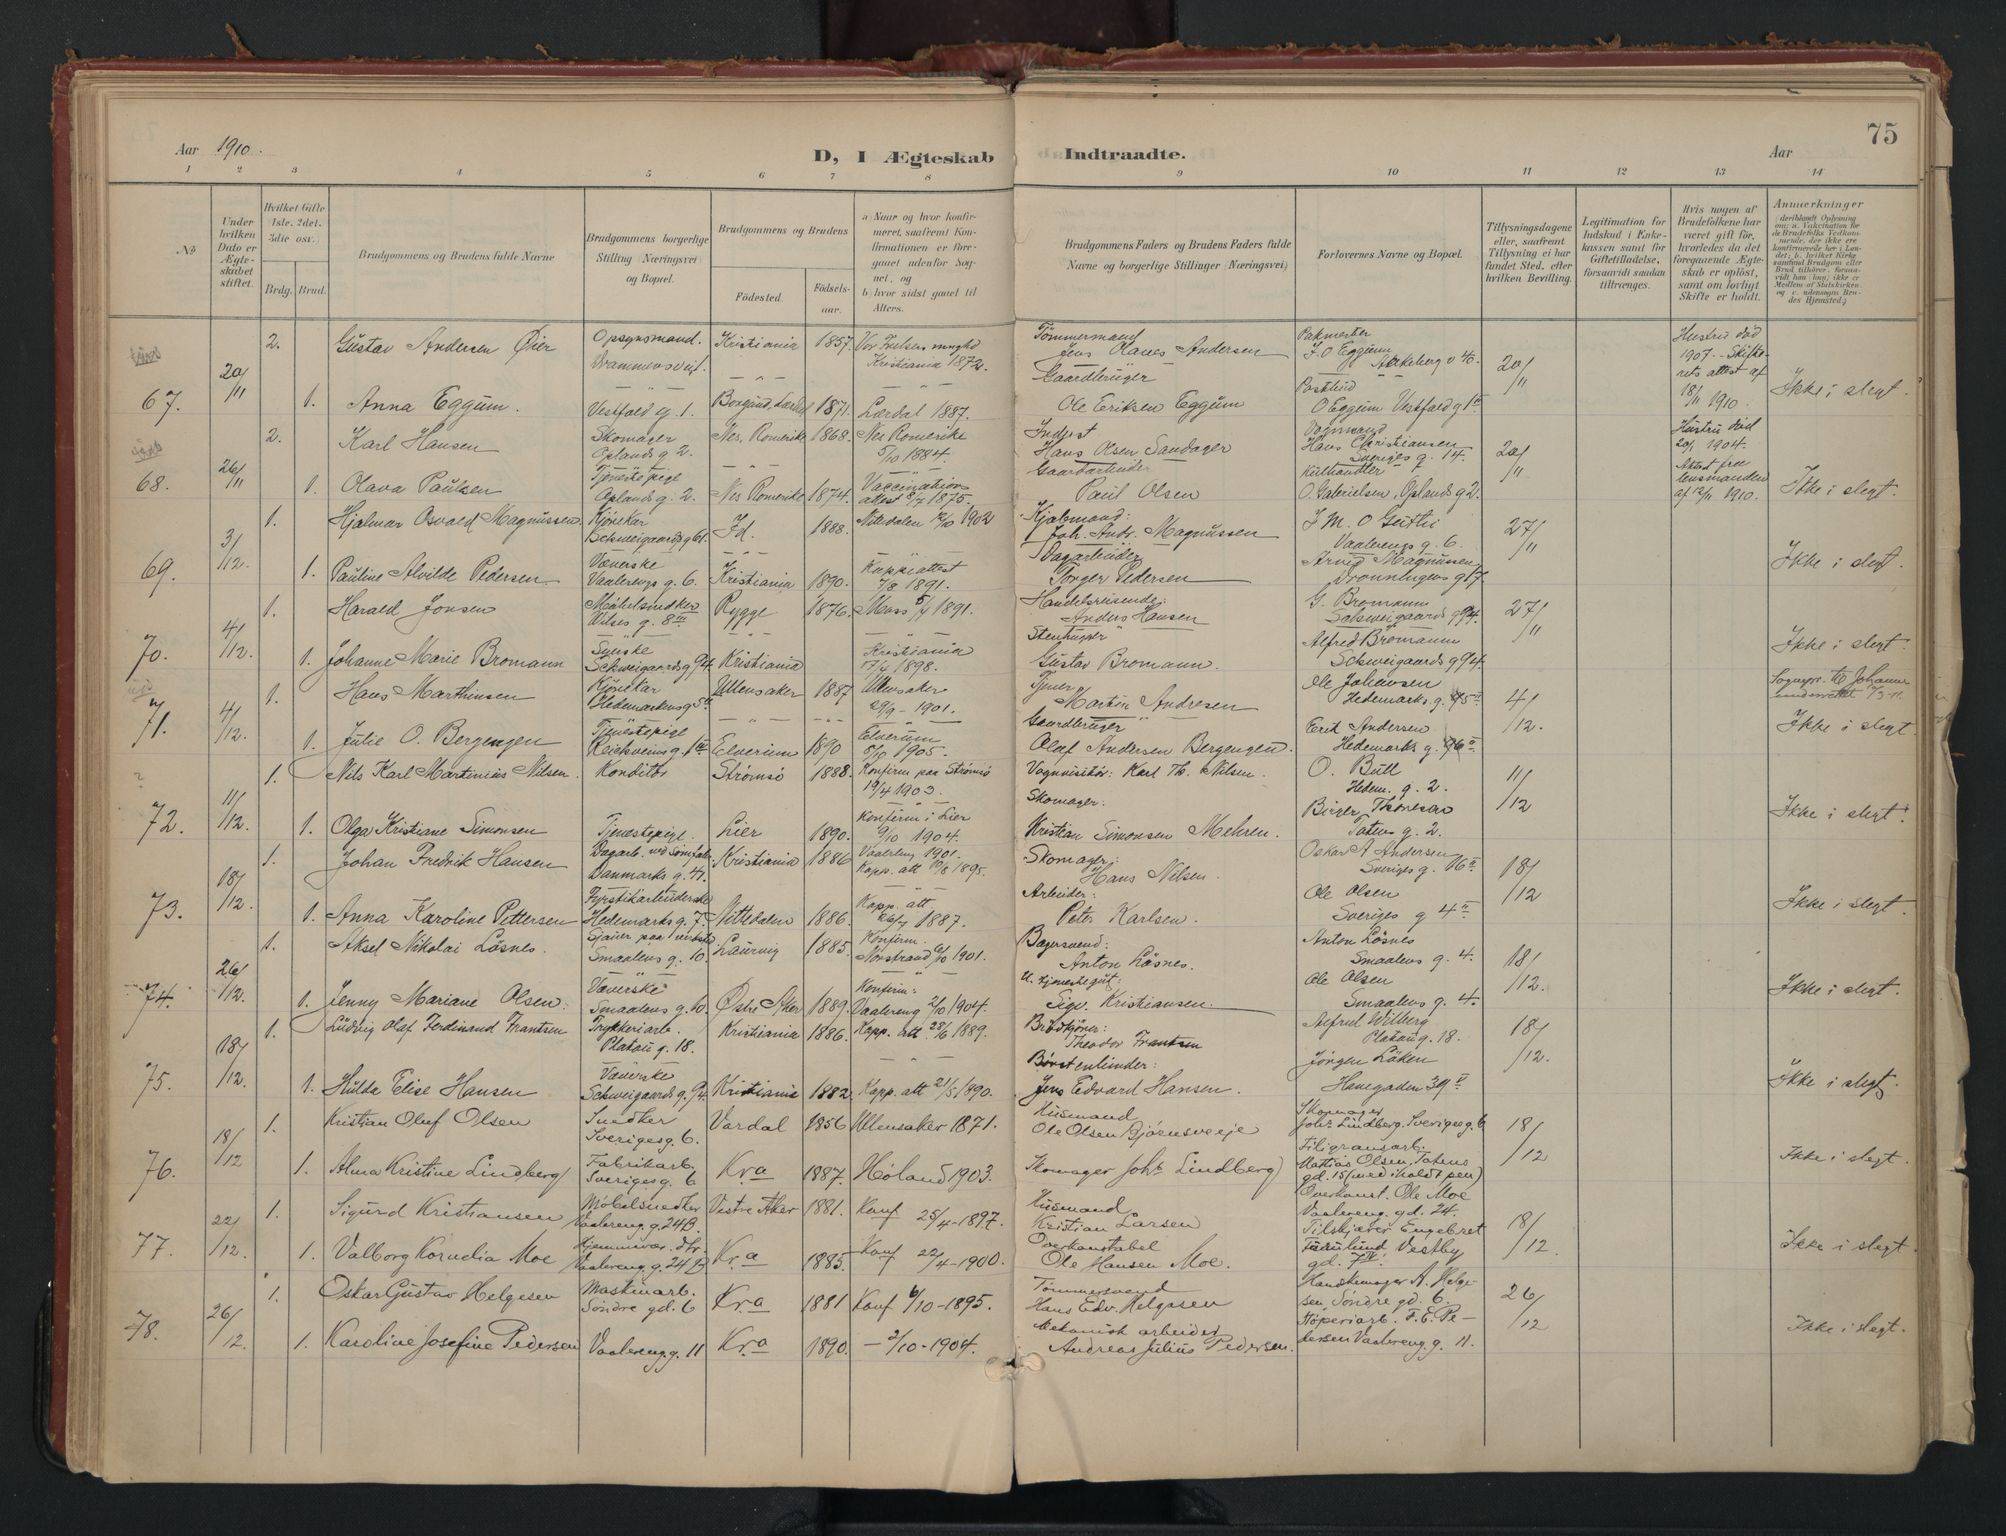 Aar 1910.
D, I Ægteskab Indtraadte.
Aar
75
1 2 3 4 5 6 7 8 9 10 11 12 13 14
No
Under hvilken Dato er Ægteskabet stiftet.
Hvilket Gifte 1ste, 2det, 3die osv.
Brdg. Brud.
Brudgommens og Brudens fulde Navne
Brudgommens borgerlige Stilling (Næringsvei) og Bopæl.
Brudgommens og Brudens
Fødested. Fødselsaar.
a) Naar og hvor konfirmeret, saafremt Konfirmationen er foregaaet udenfor Sognet, og
b) hvor sidst gaaet til Alters.
Brudgommens Faders og Brudens Faders fulde Navne og borgerlige Stillinger (Næringsvei)
Forlovernes Navne og Bopæl.
Tillysningsdagene eller, saafremt Tillysning ei har fundet Sted, efter hvilken Bevilling.
Legitimation for Indskud i Enkekassen samt for Giftetilladelse, forsaavidt saadan tiltrænges.
Hvis nogen af Brudefolkene har været gift før, hvorledes da det foregaaende Ægteskab er opløst, samt om lovligt Skifte er holdt.
Anmerkninger
67. 20/11 2. Gustav Andersen Øier Opsynsmand. Drammensvei 1. Kristiania 1857. Vor Frelsers mnghd Kristiania 1872. Tømmermand Jens Hanes Andersen Pakmester J. O Eggum Aakeberg v 46. 20/11 Hustru død 1907 - Skifterets attest af 18/11 1910.
1. Anna Eggum. Vestfold g 1. Borgund, Lærdal 1871. Lærdal 1887. Gaardbruger Ole Eriksen Eggum Postbud O Eggum Vestfold g 1 III Ikke i slegt.
68. 26/11 2. Karl Hansen Skomager Oplands g 2. Nes, Romerike 1868. Nes Romerike 5/10 1884. Inderst Hans Olsen Sandager Vognmand Hans Christiansen Sveriges g. 14. 20/11 Hustru død 20/1 1904. Attest fra lensmanden af 12/11 1910.
1. Olava Paulsen Tjenestepige Oplands g. 2. Nes Romerike 1874. Vaccinations attest 8/7 1875. Gaardarbeider Paul Olsen Kulhandler O. Gabrielsen, Oplands g 2. Ikke i slegt.
69. 3/12 1. Hjalmar Osvald Magnussen Kjørekar Schweigaards g 61. Id. 1888. Nittedalen 12/10 1902 Kjøbmand: Joh. Andr. Magnussen J. M. O Guthi Vaalerengs g. 6. 27/11
1. Pauline Alvilde Pedersen Væverske Vaalerengs g. 6. Kristiania 1890. Koppeattest 7/8 1891. Dagarbeider Torger Pedersen Arnt Magnussen Dronningens g 17. Ikke i slegt.
70. 4/12 1. Harald Jonsen Møbelsnedker Wilses g. 8 III Rygge 1876. Moss 5/4 1891. Handelsreisende: Anders Hansen G. Bromann Schweigaards g 94. 27/11
1. Johanne Marie Bromann Syerske Schweigaards g 94. Kristiania Kristiania 17/4 1898. Stenhugger Gustav Bromann. Alfred Bromann Schweigaards g 94. Ikke i slegt.
71. 4/12 1. Hans Marthinsen Kjørekar Hedemarkens g 5 II Ullensaker 1887 Ullensaker 29/9 - 1901. Tjener Martin Andresen Ole Johansen Hedemarks g. 5 II 4/12.
1. Julie O. Bergengen Tjenestepige Reichweins g. 1 III Elverum 1890 Elverum 8/10 1905. Gaardbruger Olaf Andersen Bergengen. Erik Andersen Hedemarks g. 6 II Ikke i slegt.
72. 11/12. 1. Nils Karl Martinius Nilsen. Konditor Strømsø 1888. Konfirm paa Strømsø 19/4 1903. Vognvisitør: Karl Th. Nilsen. O. Bull Hedem. g. 2. 11/12
1. Olga Kristiane Simonsen Tjenestepige. Lier 1890. Konfirm i Lier 9/10 1904. Skomager. Kristian Simonsen Mehren. Birger Thoresen Totens g. 2. Ikke i slegt.
73. 18/12. 1. Johan Fredrik Hansen Dagarb. Danmarks g. 41. Kristiania 1886 Vaalereng 1901. Kopp. att 19/8 1895. Skomager: Hans Nilsen. Oskar A Andersen Sveriges g. 16 II 18/12
1. Anna Karoline Pettersen Fyrstikarbeiderske Hedemarks g. 7. Nittedalen 1886. Kopp. att. 26/7 1887. Arbeider: Peter Karlsen. Ole Olsen Sveriges g 4 II Ikke i slegt.
74. 26/12. 1. Aksel Nikolai Løsnes. Sjauer paa verksted Smaalens g. 10. Laurvig 1885. Konfirm. Norstrand 6/10 1901. Bagersvend: Anton Løsnes. Anton Løsnes Smaalens g. 4. 18/12.
1. Jenny Mariane Olsen. Væverske Smaalens g. 10. Østre Aker 1889. Konfirm: Vaalereng 2/10 1904. U. tjenestegut: Sigv. Kristiansen. Ole Olsen Smaalens g. 4. Ikke i slegt.
75. 18/12. 1. Ludvig Olaf Ferdinand Frantsen Trykkeriarb. Platou g. 18. Kristiania 1886. Kopp. att 28/6 1889. Brødkjører: Theodor Frantsen Alfred Wilberg Platou g. 18. 18/12.
1. Hulda Elise Hansen Væverske Schweigaards g. 94. Kristiania 1882. Kopp. att 21/5 1890. Børstenbinder: Jens Edvard Hansen. Jørgen Løken Hanegaden 39 II Ikke i slegt.
76. 18/12 1. Kristian Oluf Olsen Snedker Sveriges g. 6. Vardal 1856 Ullensaker 1871. Husmand Ole Olsen Bjørensveeje Skomager Johs Lindberg, Sveriges g. 6 18/12
1. Alma Kristine Lindberg Fabrikarb. Sveriges g. 6 Kr.a 1887. Høland 1903. Skomager Johs Lindberg Filigransarb. Mathias Olsen, Totens gd. 15 (med iholdt pen) Ikke i slegt.
77. 22/12. 1. Sigurd Kristiansen Møbelsnedker Vaalereng g. 24B. Vestre Aker 1881. Konf 25/4-1897. Husmand Kristian Larsen Overkonst. Ole Moe Vaalereng gd. 24. 18/12.
1. Valborg Kornelia Moe Hjemmevær. dtr. Vaalereng g. 24 B Kr.a 1885. Konf 22/4-1900. Overkonstabel Ole Hansen Moe. Tilskjærer Engebret Vestby gd. 7 IV. Ikke i slegt.
78. 26/12. 1. Oskar Gustav Helgesen Maskinarb. Søndre gd. 6 Kr.a 1881 Konf 6/10-1895. Tømmersvend Hans Edv. Helgesen Handskemager A. Helgesen, Søndre gd. 6. 26/12
1. Karoline Josefine Pedersen Vaalereng g. 11 Kr.a 1890. - 2/10-1904. Mekanisk arbeider Andreas Julius Pedersen. Støperiarb. F. E. Pedersen Vaalereng g. 11. Ikke i slegt.